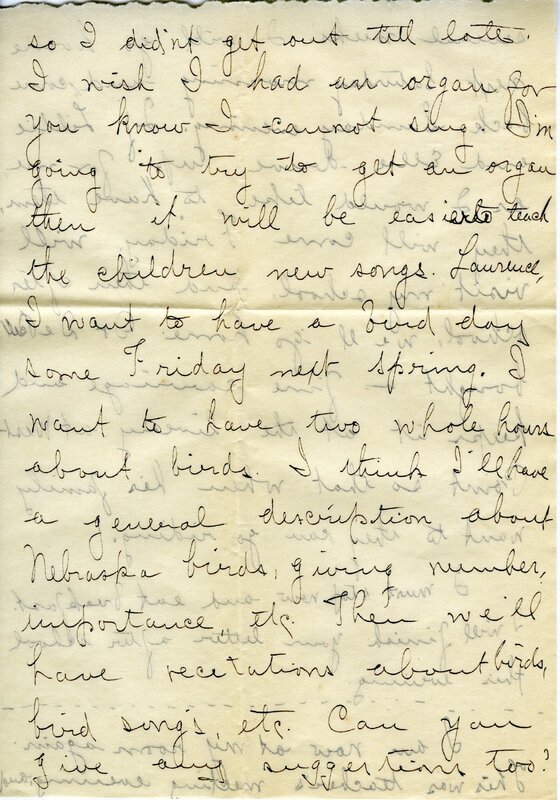 so I didn't get out till late.
I wish I had an organ for
you know I cannot sing. I'm
going to try to get an organ
then it will be easier to teach
the children new songs. Lawrence,
I want to have a bird day
some Friday next spring. I
want to have two whole hours
about birds. I think I'll have
a general description about
Nebraska birds, giving number,
importance, etc. Then we'll
have recitations about birds,
bird songs, etc. Can you
give any suggestions too?